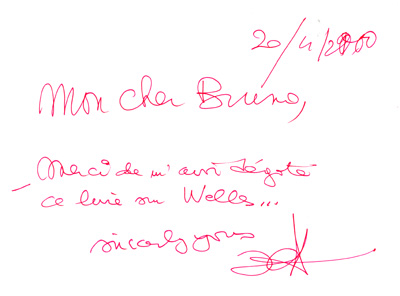 20/4/2000
Mon cher Bruno,
Merci de m'avoir dégoté
ce livre sur Welles...
sincerely yours